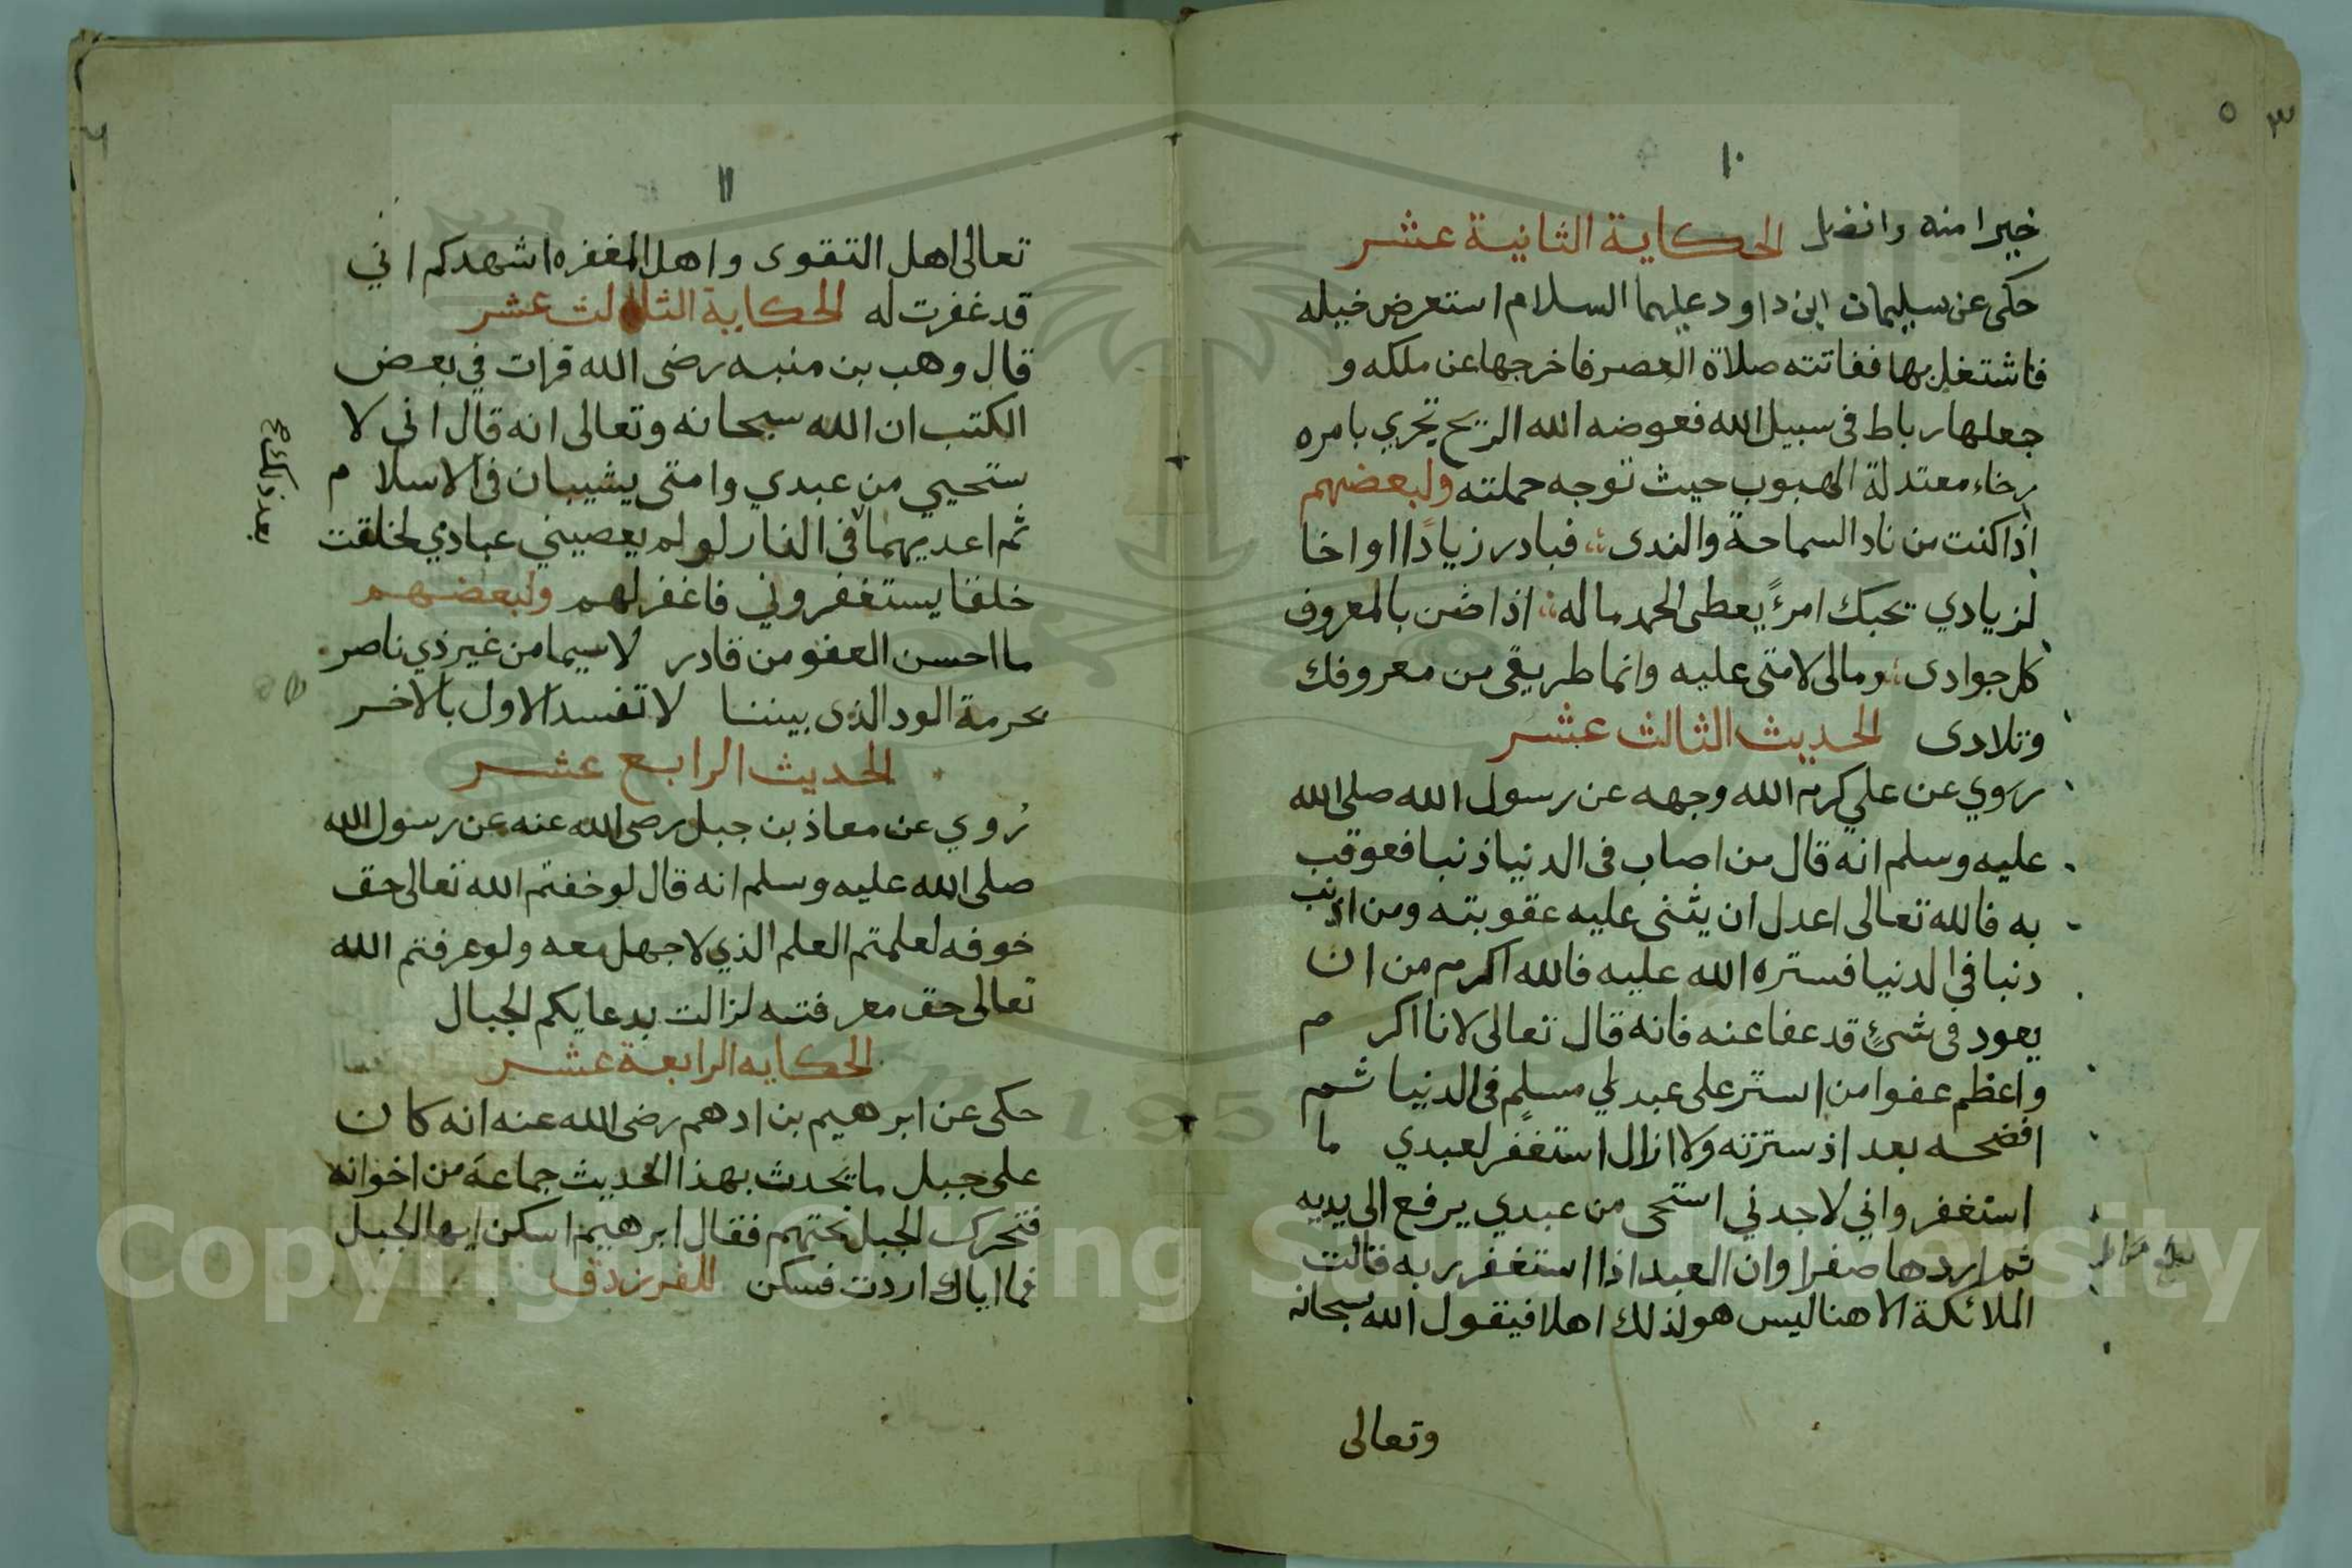 ١٠
خيرا منه وافضل الحكاية الثانية عشر
حكى عن سليمان ابن داود عليهما السلام استعرض خيله
فاشتغل بها ففاتته صلاة العصر فاخرجها عن ملكه و
جعلها رباط فى سبيل الله فعوضه الله الريح تجري بامره
رخاء معتدلة الهبوب حيث توجه حملته ولبعضهم
اذا كنت من ناد السماحة والندى فبادر زيادًا او اخا
لزيادي يحبك امرئً يعطى الحمد ماله اذا ضن بالمعروف
كل جوادى ومالى لامتى عليه وانما طريقى من معروفك
وتلادى الحديث الثالث عشر
روي عن علي كرم الله وجهه عن رسول الله صلى الله
عليه وسلم انه قال من اصاب فى الدنيا ذنبا فعوقب
به فالله تعالى اعدل ان يثنى عليه عقوبته ومن اذنب
دنبا في الدنيا فستره الله عليه فالله اكرم من ان
يعود فى شئٍ قد عفا عنه فانه قال تعالى لانا اكر م
واعظم عفوا من استر على عبد لي مسلم فى الدنيا ثم
افضحه بعد اذ سترته ولا ازال استغفر لعبدي ما
استغفر واني لاجدني استحى من عبدي يرفع الى يديه
ثم اردها صفرا وان العبد اذا استغفر ربه قالت
الملائكة الاهنا ليس هو لذلك اهلا فيقول الله سبحانه
وتعالى
٥
٣
١١
تعالى اهل التقوى واهل المغفره اشهدكم اني
قد غفرت له الحكاية الثالث عشر
قال وهب بن منبه رضى الله قرات في بعض
الكتب ان الله سبحانه وتعالى انه قال اني لا
ستحيي من عبدي وامتى يشيبان فى الاسلا م
ثم اعذبهما فى النار لو لم يعصيني عبادي لخلقت
خلقا يستغفروني فاغفر لهم ولبعضهم
ما احسن العفو من قادر لاسيما من غير ذي ناصر
بحرمة الود الذى بيننا لا تفسد الاول بالاخر
الحديث الرابع عشر
رُوي عن معاذ بن جبل رضى الله عنه عن رسول الله
صلى الله عليه وسلم انه قال لو خفتم الله تعالى حق
خوفه لعلمتم العلم الذي لا جهل معه ولو عرفتم الله
تعالى حق معرفته لزالت بدعايكم الجبال
الحكايه الرابعة عشر
حكى عن ابرهيم بن ادهم رضى الله عنه انه كان
على جبل ما يحدث بهذا الحديث جماعة من اخوانه
فتحرك الجبل تحتهم فقال ابرهيم اسكن ايها الجبل
فما اياك اردت فسكن للفرزدق
بعد ذلك
Copyright © King Saud University
195